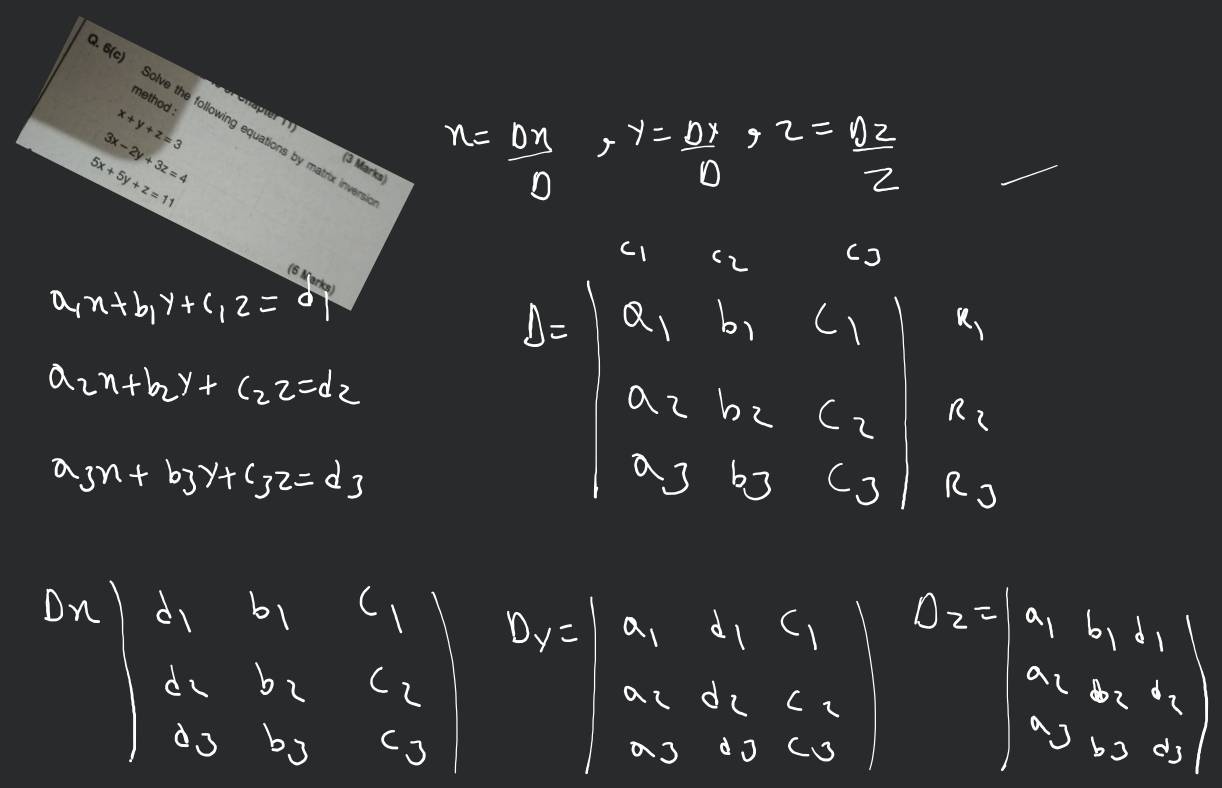 Q. 6(c) Solve the following equations by matrix inversion
method :
(3 Marks)
x + y + z = 3
3x – 2y + 3z = 4
5x + 5y + z = 11
(6 Marks)
x = Dx/D , y = Dy/D , z = Dz/Z
a1x+b1y+c1z = d1
a2x+b2y+c2z=d2
a3x+b3y+c3z=d3
c1 c2 c3
D= | a1 b1 c1 | R1
| a2 b2 c2 | R2
| a3 b3 c3 | R3
Dx | d1 b1 c1 |
| d2 b2 c2 |
| d3 b3 c3 |
Dy = | a1 d1 c1 |
| a2 d2 c2 |
| a3 d3 c3 |
Dz = | a1 b1 d1 |
| a2 b2 d2 |
| a3 b3 d3 |